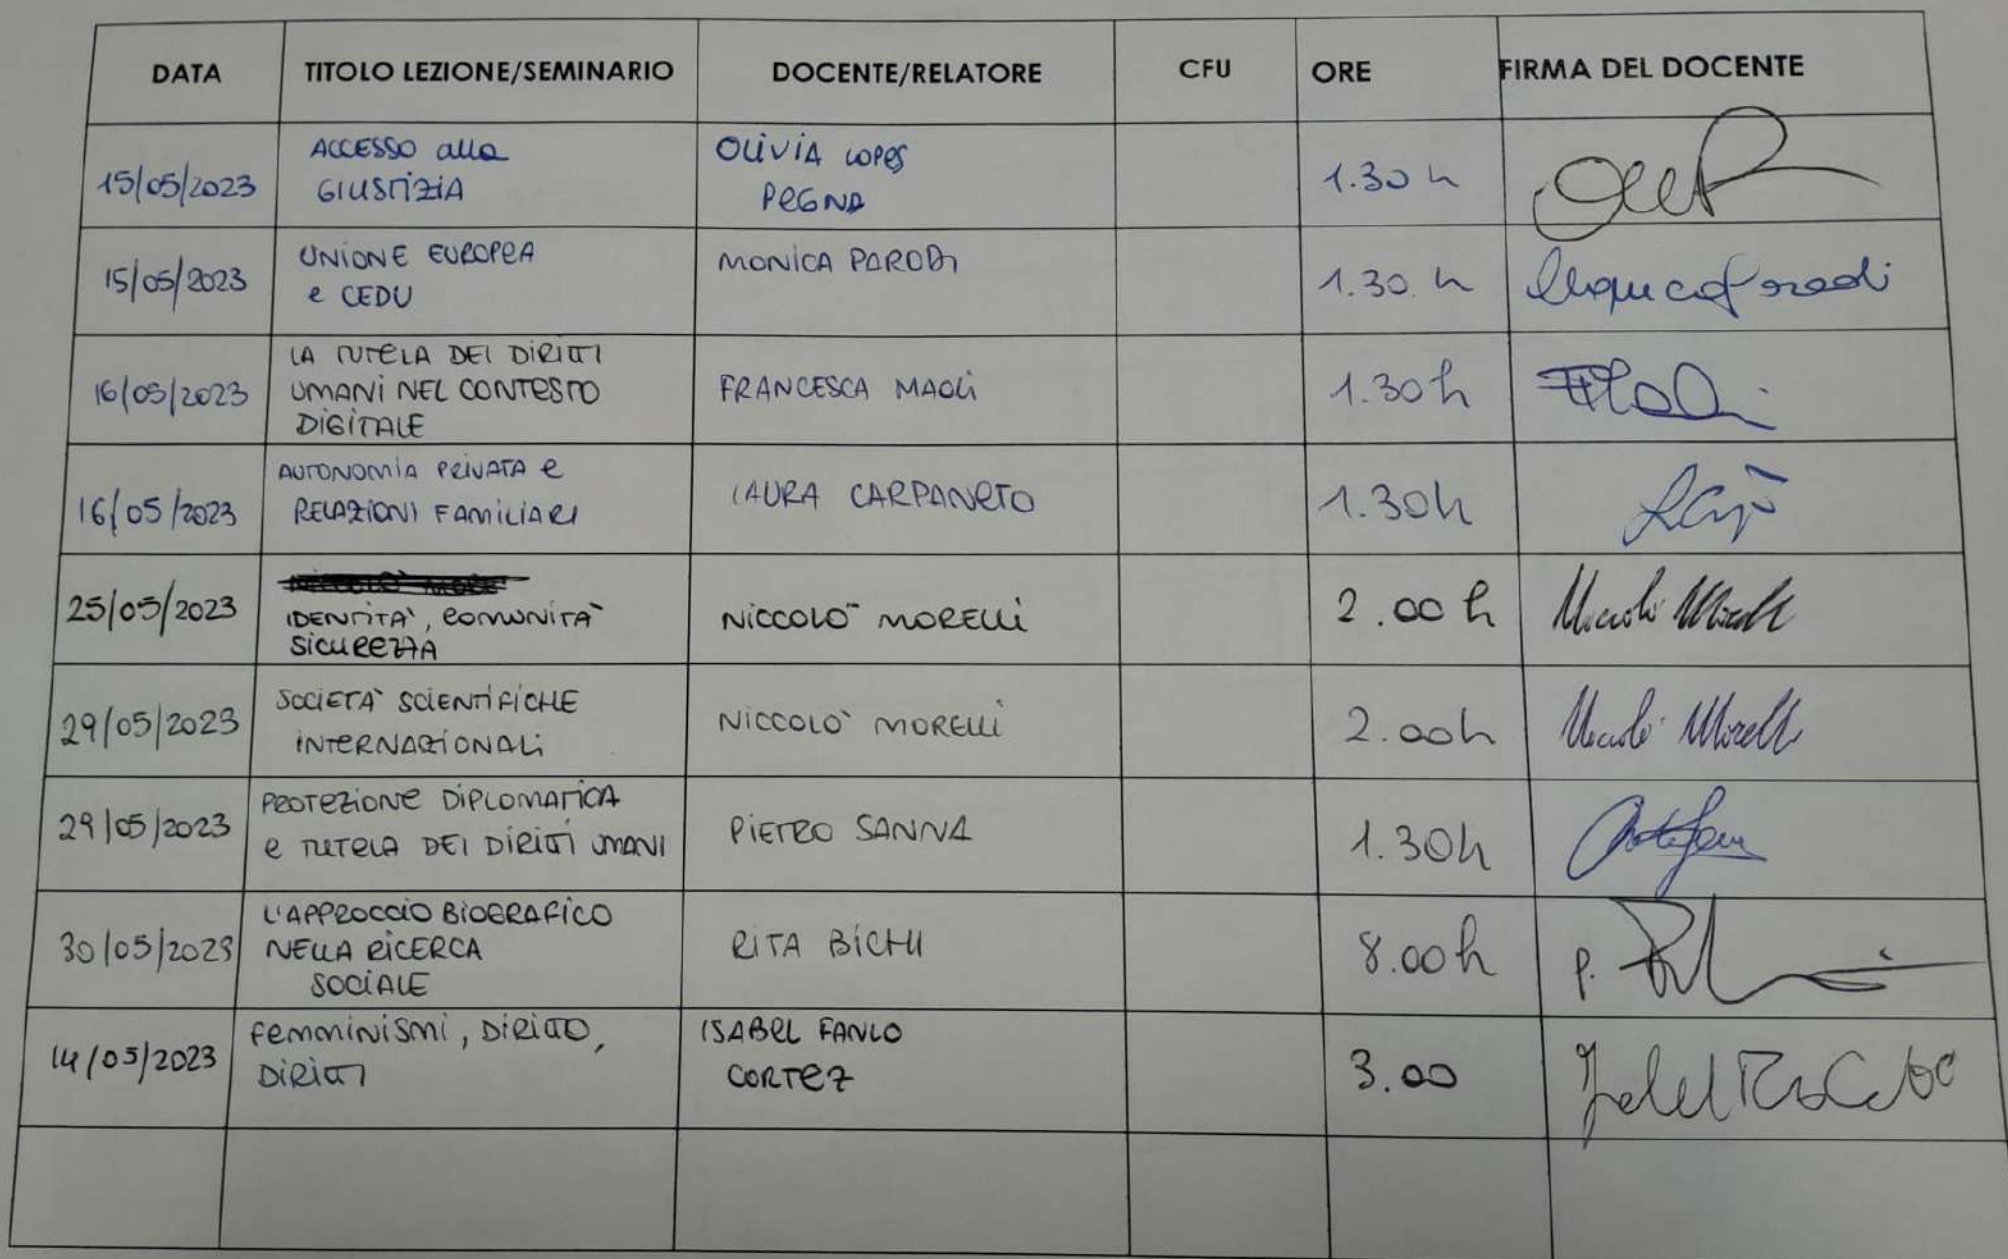 DATA TITOLO LEZIONE/SEMINARIO DOCENTE/RELATORE CFU ORE FIRMA DEL DOCENTE
15/05/2023
ACCESSO alla
GIUSTIZIA
OLIVIA LOPES
PEGNA
1.30 h
15/05/2023
UNIONE EUROPEA
e CEDU
MONICA PARODI
1.30. h
16/05/2023
LA TUTELA DEI DIRITTI
UMANI NEL CONTESTO
DIGITALE
FRANCESCA MAOLI
1.30h
16/05/2023
AUTONOMIA PRIVATA e
RELAZIONI FAMILIARI
LAURA CARPANETO
1.30h
25/05/2023
IDENTITA', COMUNITA'
SICUREZZA
NICCOLO' MORELLI
2.00 h
Niccolò Morelli
29/05/2023
SOCIETA' SCIENTIFICHE
INTERNAZIONALI
NICCOLO' MORELLI
2.00h
Niccolò Morelli
29/05/2023
PROTEZIONE DIPLOMATICA
e TUTELA DEI DIRITTI UMANI
PIETRO SANNA
1.30h
30/05/2023
L'APPROCCIO BIOGRAFICO
NELLA RICERCA
SOCIALE
RITA BICHI
8.00h
P.
14/05/2023
femminismi, DIRITTO,
DIRITTI
ISABEL FANLO
CORTEZ
3.00